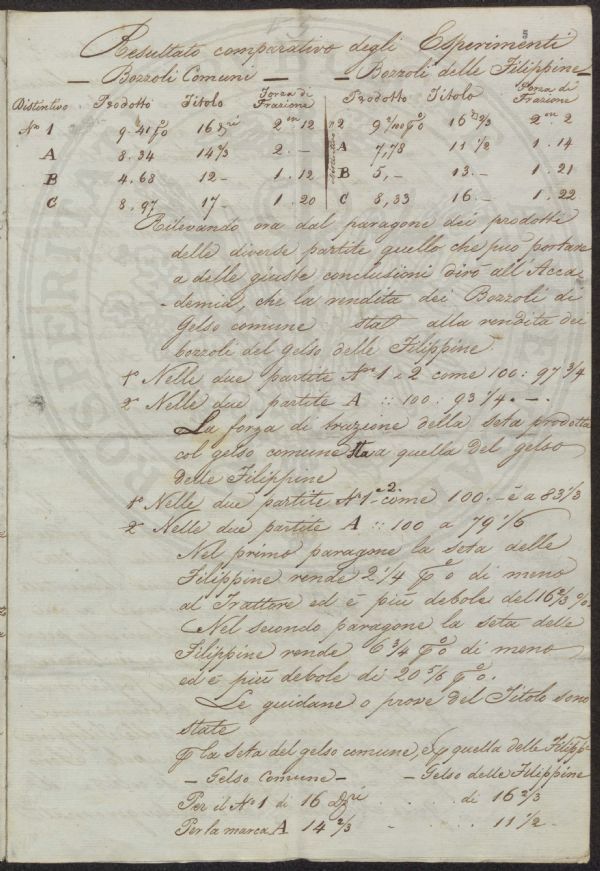 5
Resultato comparativo degli Esperimenti
— Bozzoli Comuni — — Bozzoli delle Filippine —
Distintivo Prodotto Titolo Forza di Frazione Prodotto Titolo Forza di Frazione
No 1 9.41 p%o 16 dri 2 m 12 no 2 9 2/10 p%o 16 2/3 2 m 2
A 8.34 14 2/3 2. — A 7,78 11 1/2 1.14
B 4.68 12 — 1.12 B 5,— 13.— 1.21
C 8.97 17 — 1.20 C 8,33 16.— 1.22
Rilevando ora dal paragone dei prodotti
delle diverse partite quello che può portare
a delle giuste conclusioni dirò all'Acca
-demia, che la rendita dei Bozzoli di
Gelso comune sta alla rendita dei
bozzoli del gelso delle Filippine
1o Nelle due partite No 1 e 2 come 100: 97 3/4
2o Nelle due partite A :: 100: 93 1/4.—.
La forza di trazione della seta prodotta
col gelso comune sta a quella del gelso
delle Filippine
1o Nelle due partite No 1 e 2. come 100.— è a 83 1/3
2o Nelle due partite A :: 100 a 79 1/6
Nel primo paragone la seta delle
Filippine rende 2 1/4 p%o di meno
al Trattore ed è più debole del 16 2/3 %.
Nel secondo paragone la seta delle
Filippine rende 6 3/4 p%o di meno
ed è più debole di 20 5/6 p%o.
Le guidane o prove del Titolo sono
state
p la seta del gelso comune, e p quella delle Filipp.e
— Gelso Comune — — Gelso delle Filippine
Per il No 1 di 16 dri . . . di 16 2/3
Per la marca A 14 2/3 - . . . . 11 1/2 -